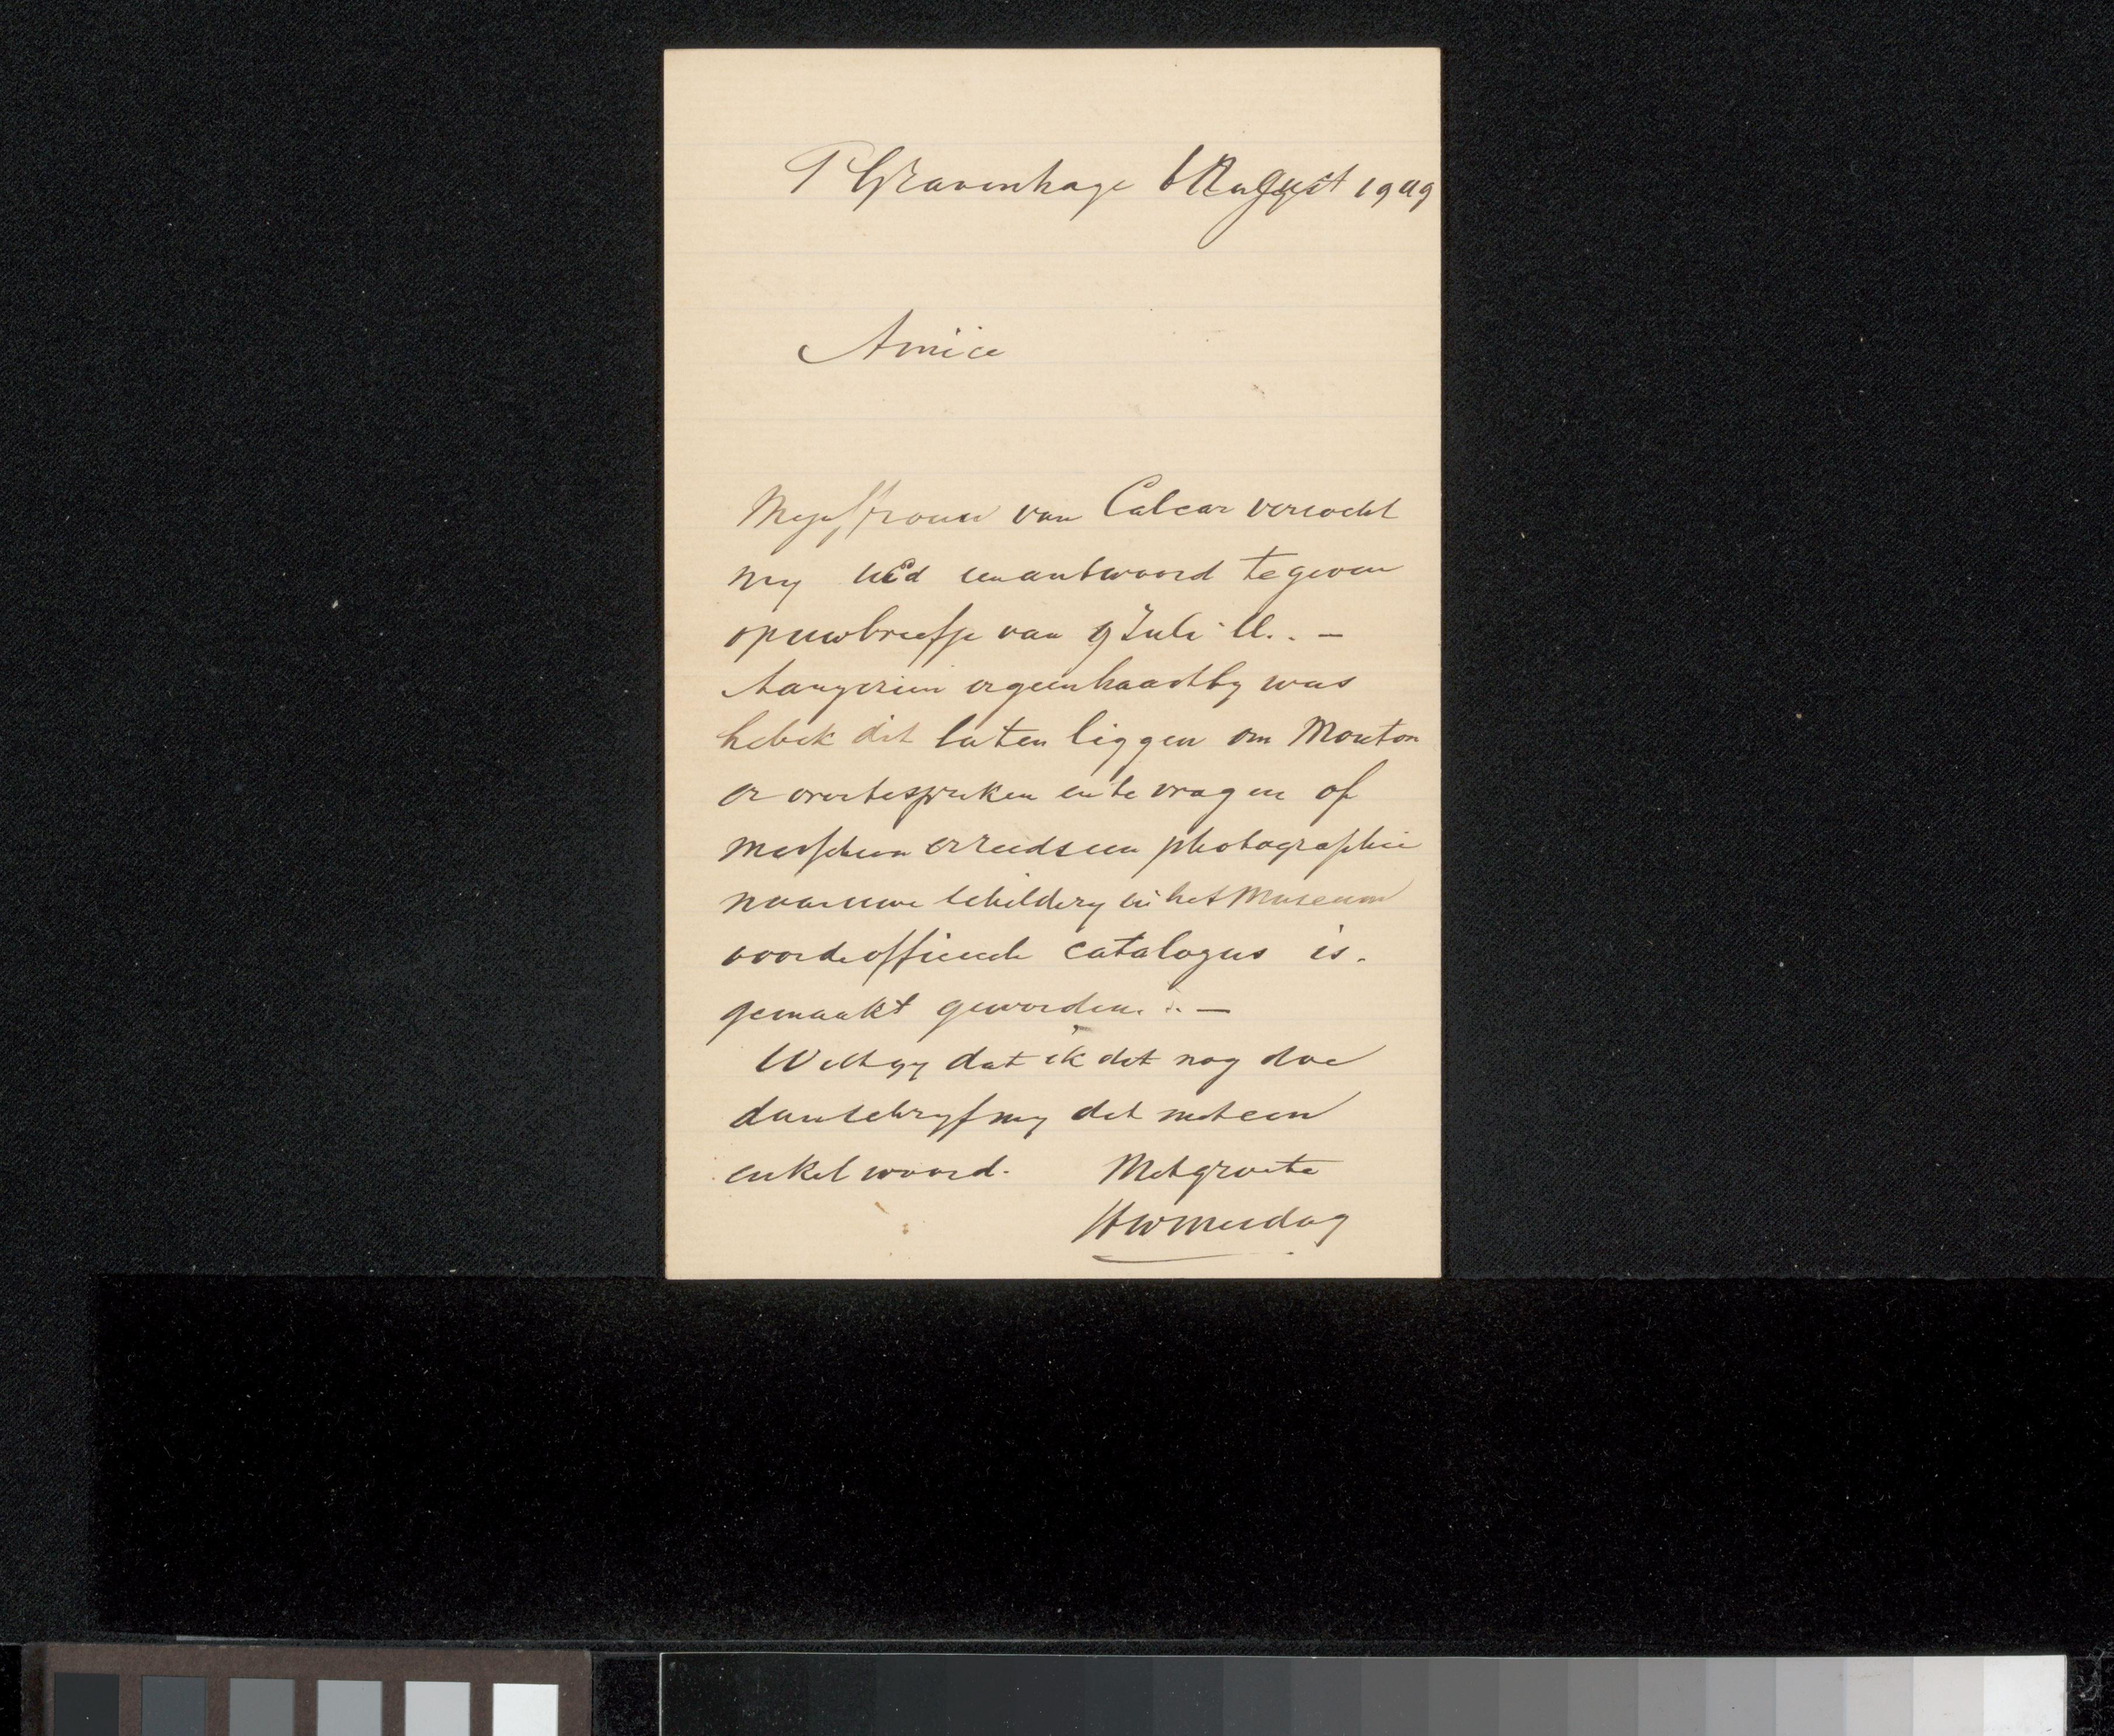 's Gravenhage 6 August 1909
Amice
Mejuffrouw van Calcar verzocht
my UEd een antwoord te geven
op uw briefje van 9 Juli ll. . —
Aangezien er geen haast by was
heb ik dit laten liggen om Mouton
er over te spreken en te vragen of
misschien er reeds een photographie
naar uwe schildery in het Museum
voor de officieele catalogus is.
gemaakt geworden. . —
Wilt gy dat ik dit nog doe
dan schryf my dit met een
enkel woord. Met groete
HWMesdag